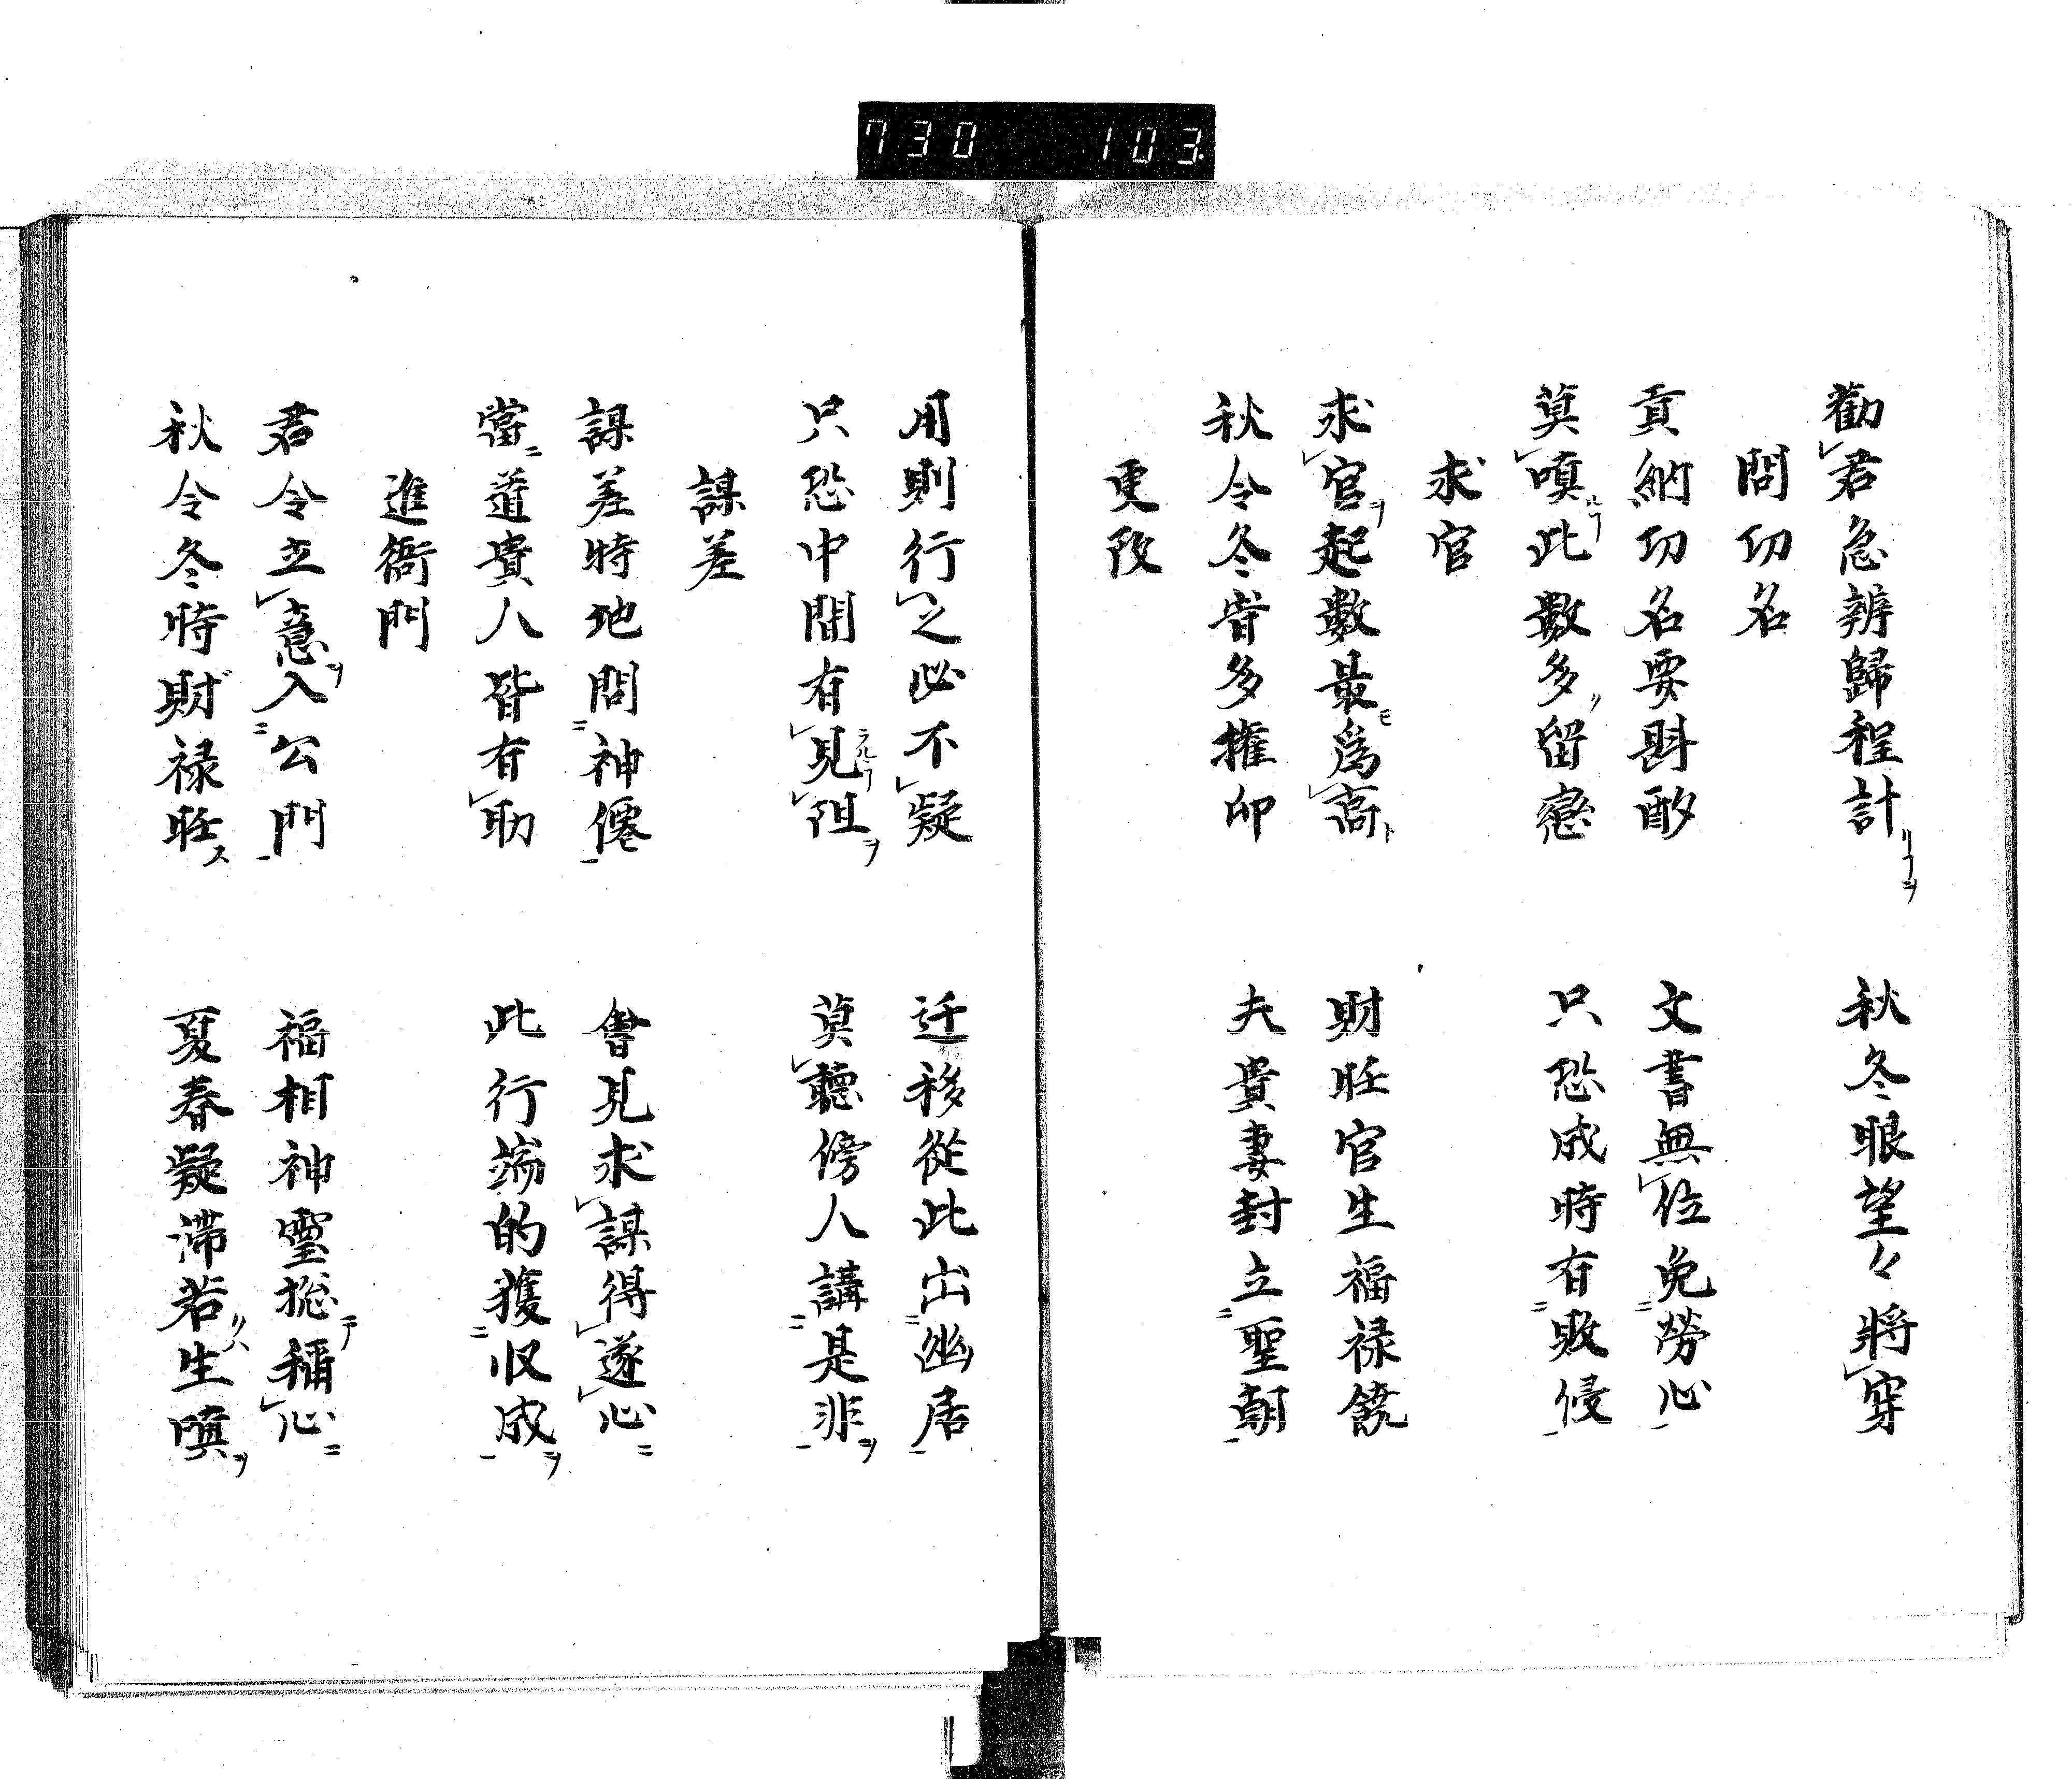 730 103.
勸君急辨歸程計 秋冬眼望々將穿
問功名
貢納功名要斟酌 文書無位免勞心
莫嗔此數多留戀 只恐成時有敗侵
求官
求官起數最爲高 財旺官生福禄饒
秋令冬皆多權印 夫貴妻封立聖朝
更改
用則行之必不疑 迁移從此出幽居
只恐中間有見阻 莫聽傍人講是非
謀差
謀差時地問神僊 會見求謀得遂心
當道貴人皆有助 此行端的獲収成
進衙門
君令立意入公門 福相神霊搃稱心
秋令冬時財禄旺 夏春疑滞若生嗔